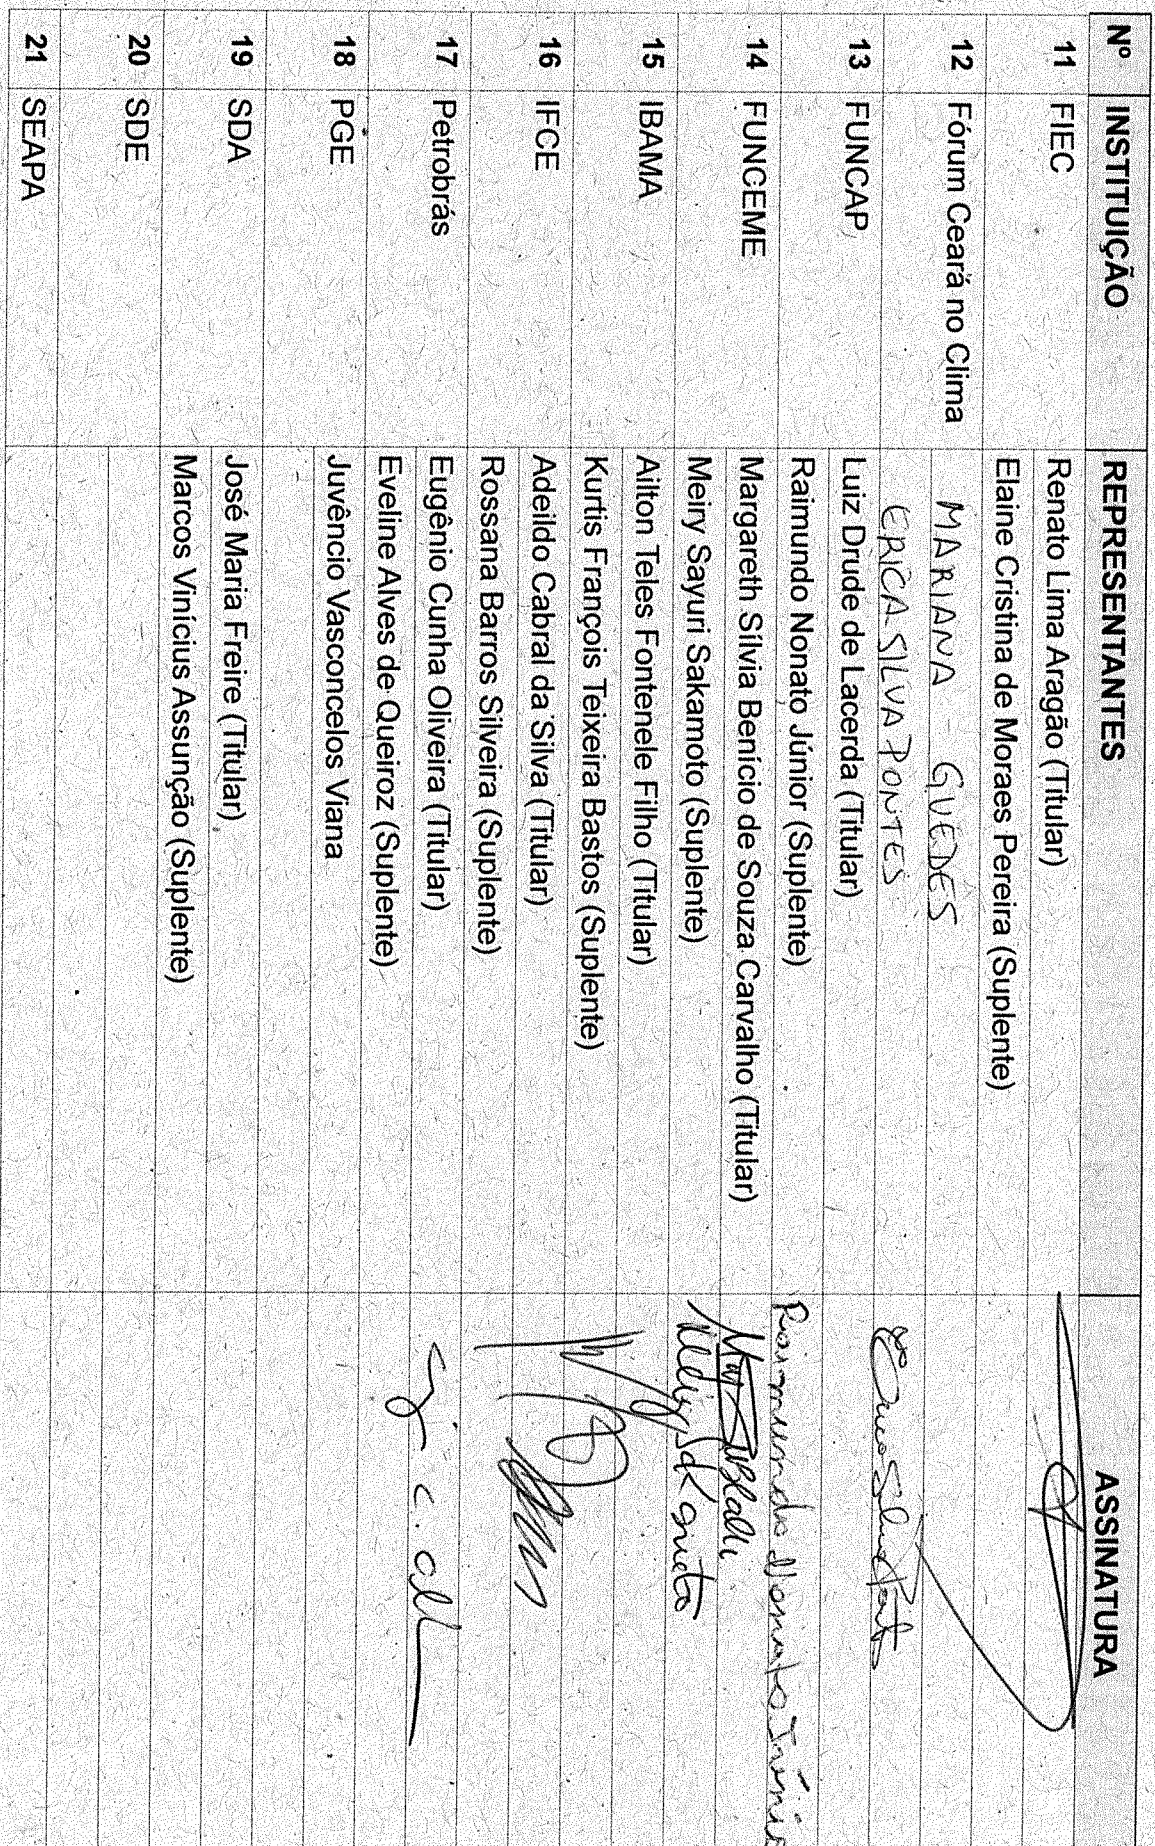 Nº INSTITUIÇÃO REPRESENTANTES ASSINATURA
11 FIEC Renato Lima Aragão (Titular)
Elaine Cristina de Moraes Pereira (Suplente)
12 Fórum Ceará no Clima MARIANA - GUEDES
ERICA SILVA PONTES
13 FUNCAP Luiz Drude de Lacerda (Titular)
Raimundo Nonato Júnior (Suplente) Raimundo Nonato Júnior
14 FUNCEME Margareth Sílvia Benício de Souza Carvalho (Titular)
Meiry Sayuri Sakamoto (Suplente)
15 IBAMA Ailton Teles Fontenele Filho (Titular)
Kurtis François Teixeira Bastos (Suplente)
16 IFCE Adeildo Cabral da Silva (Titular)
Rossana Barros Silveira (Suplente)
17 Petrobrás Eugênio Cunha Oliveira (Titular)
Eveline Alves de Queiroz (Suplente)
18 PGE Juvêncio Vasconcelos Viana
19 SDA José Maria Freire (Titular)
Marcos Vinícius Assunção (Suplente)
20 SDE
21 SEAPA